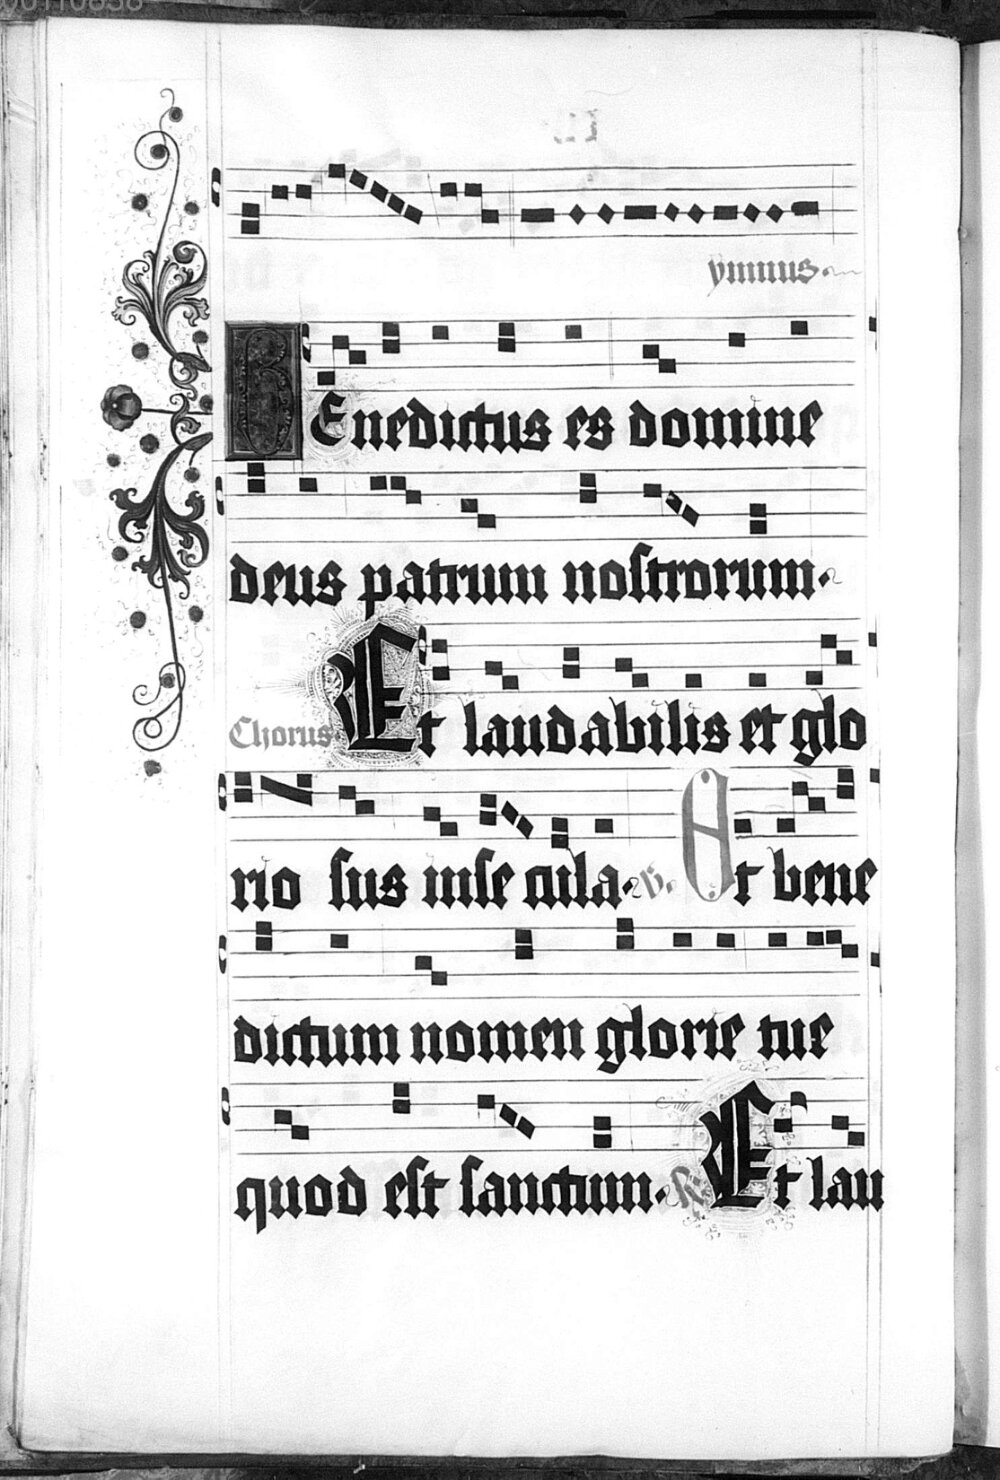 00110838
ymnus.
Benedictus es domine
deus patrum nostrorum.
Chorus Et laudabilis et glo
rio sus inse cula. v. Et bene
dictum nomen glorie tue
quod est sanctum. R Et lau